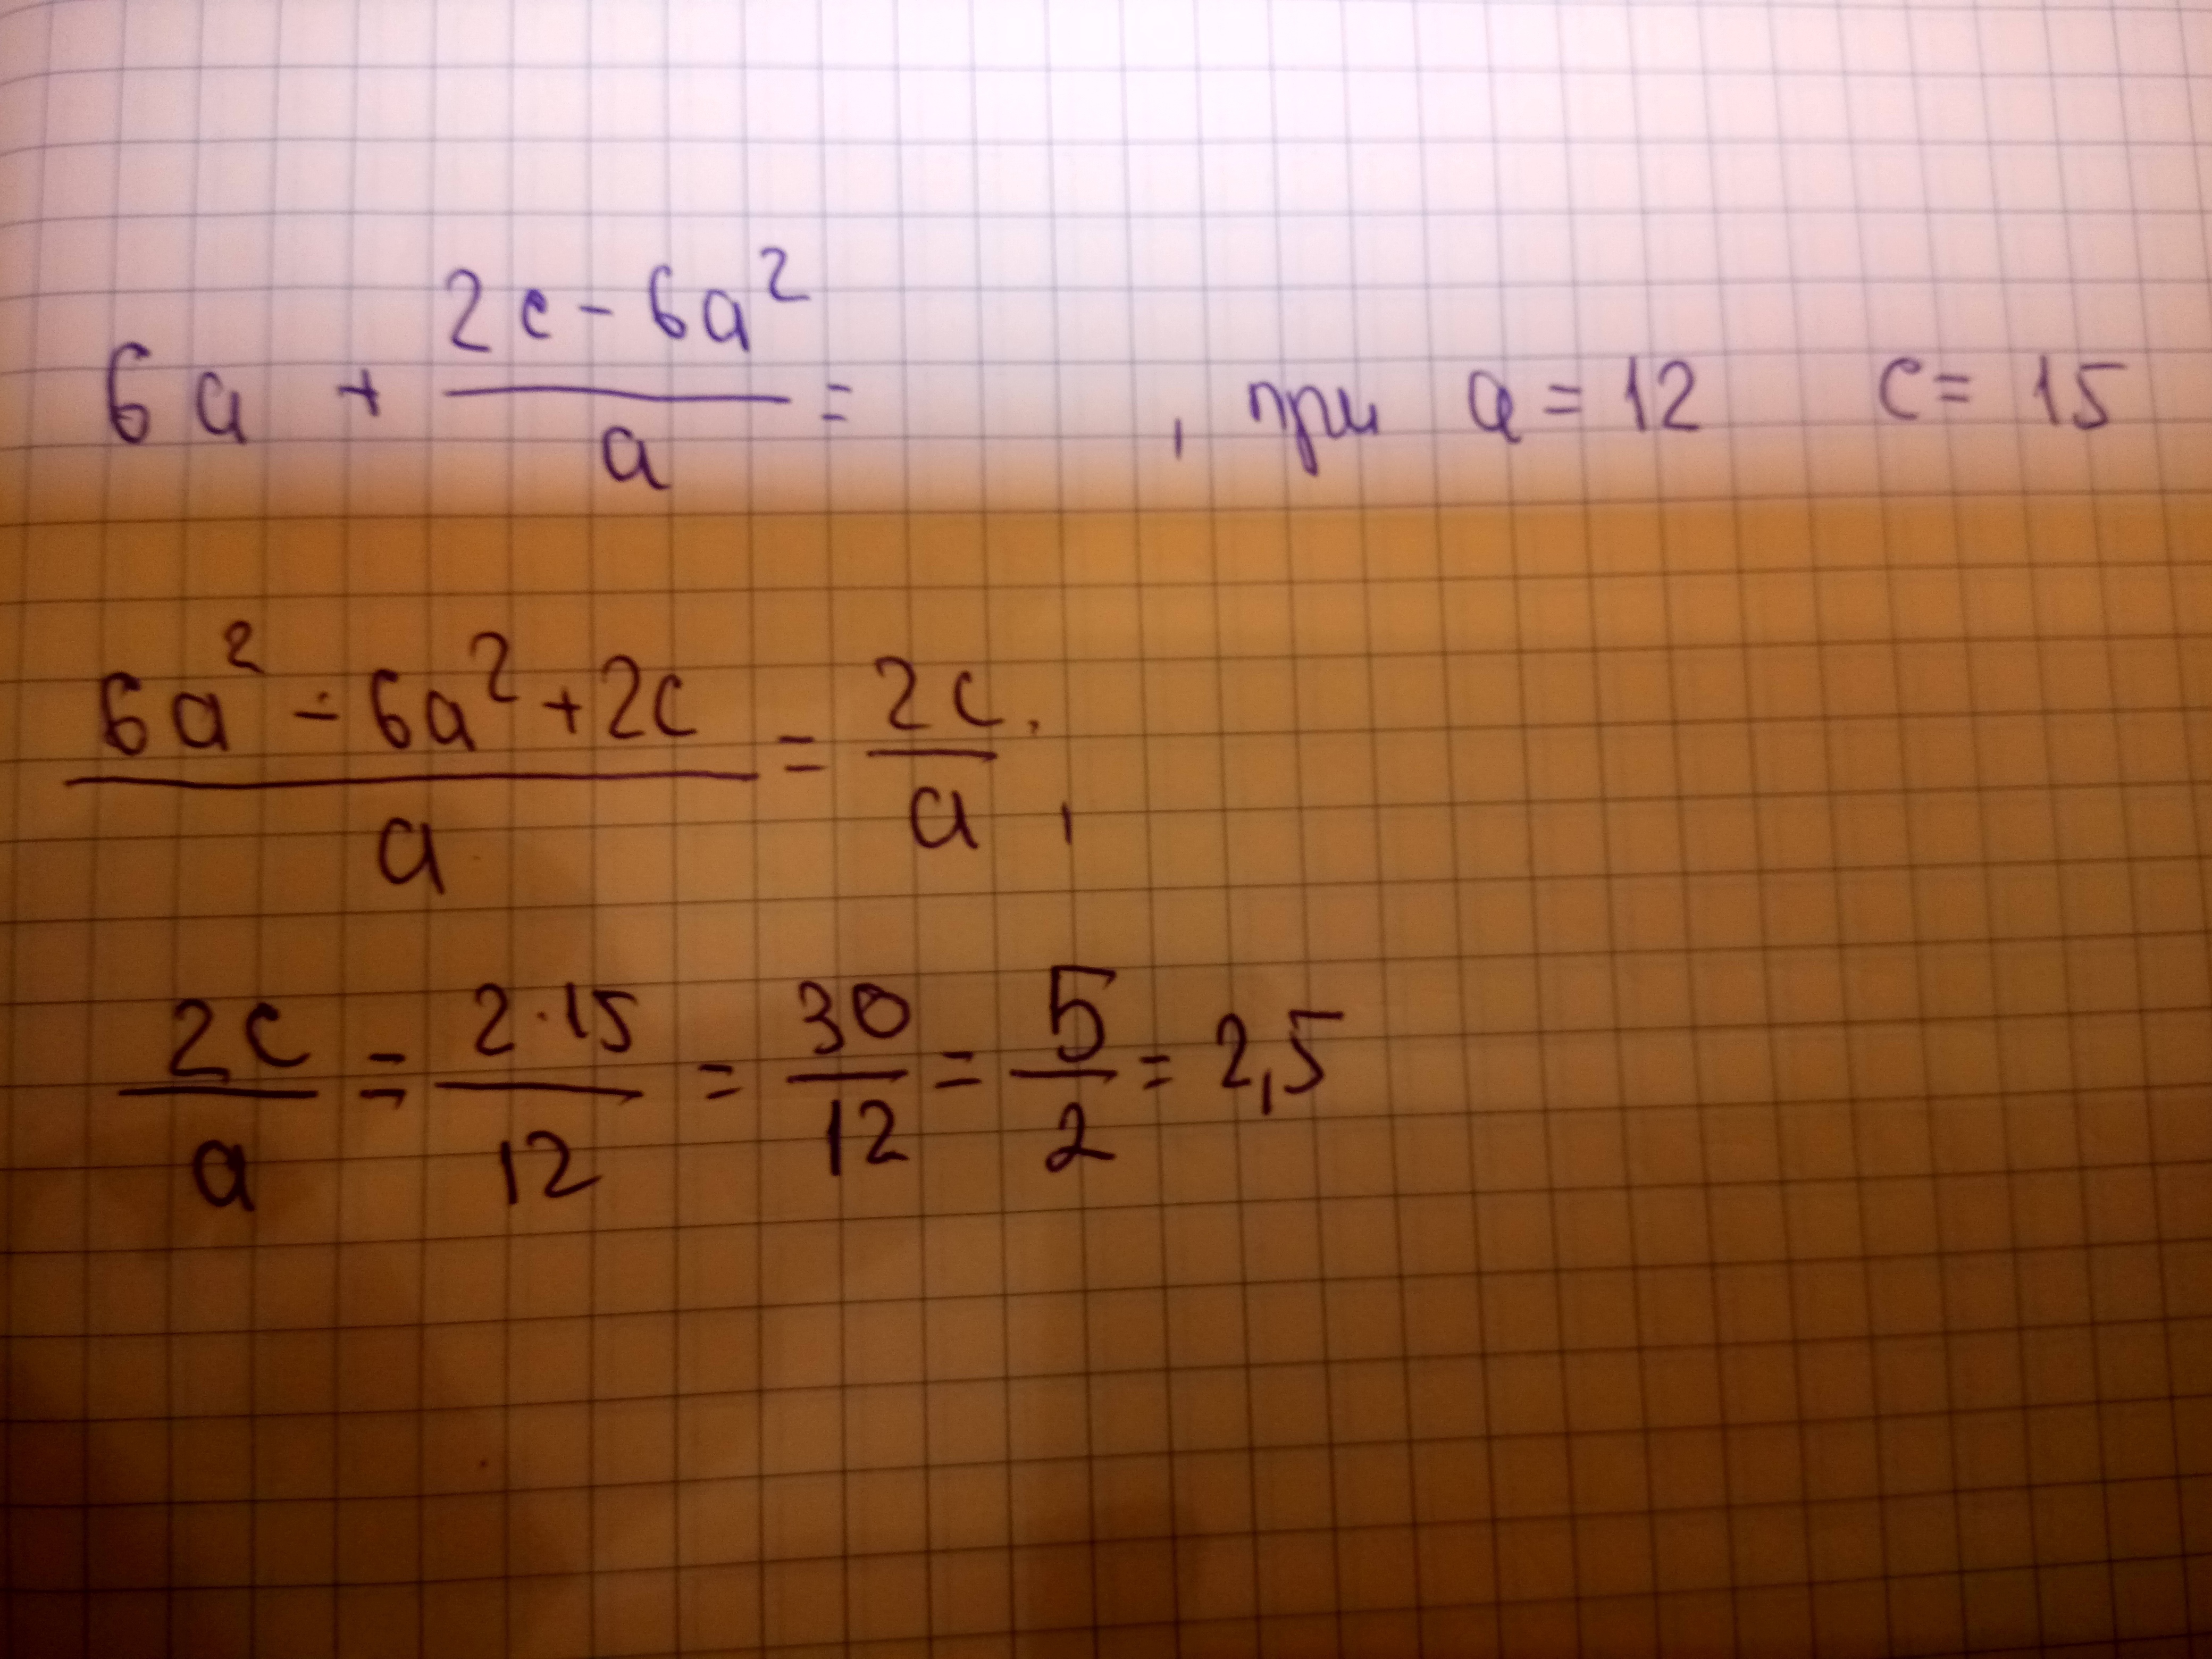 6a + (2c - 6a²)/a = , при a = 12 c = 15
(6a² - 6a² + 2c)/a = 2c/a,
2c/a = 2·15/12 = 30/12 = 5/2 = 2,5